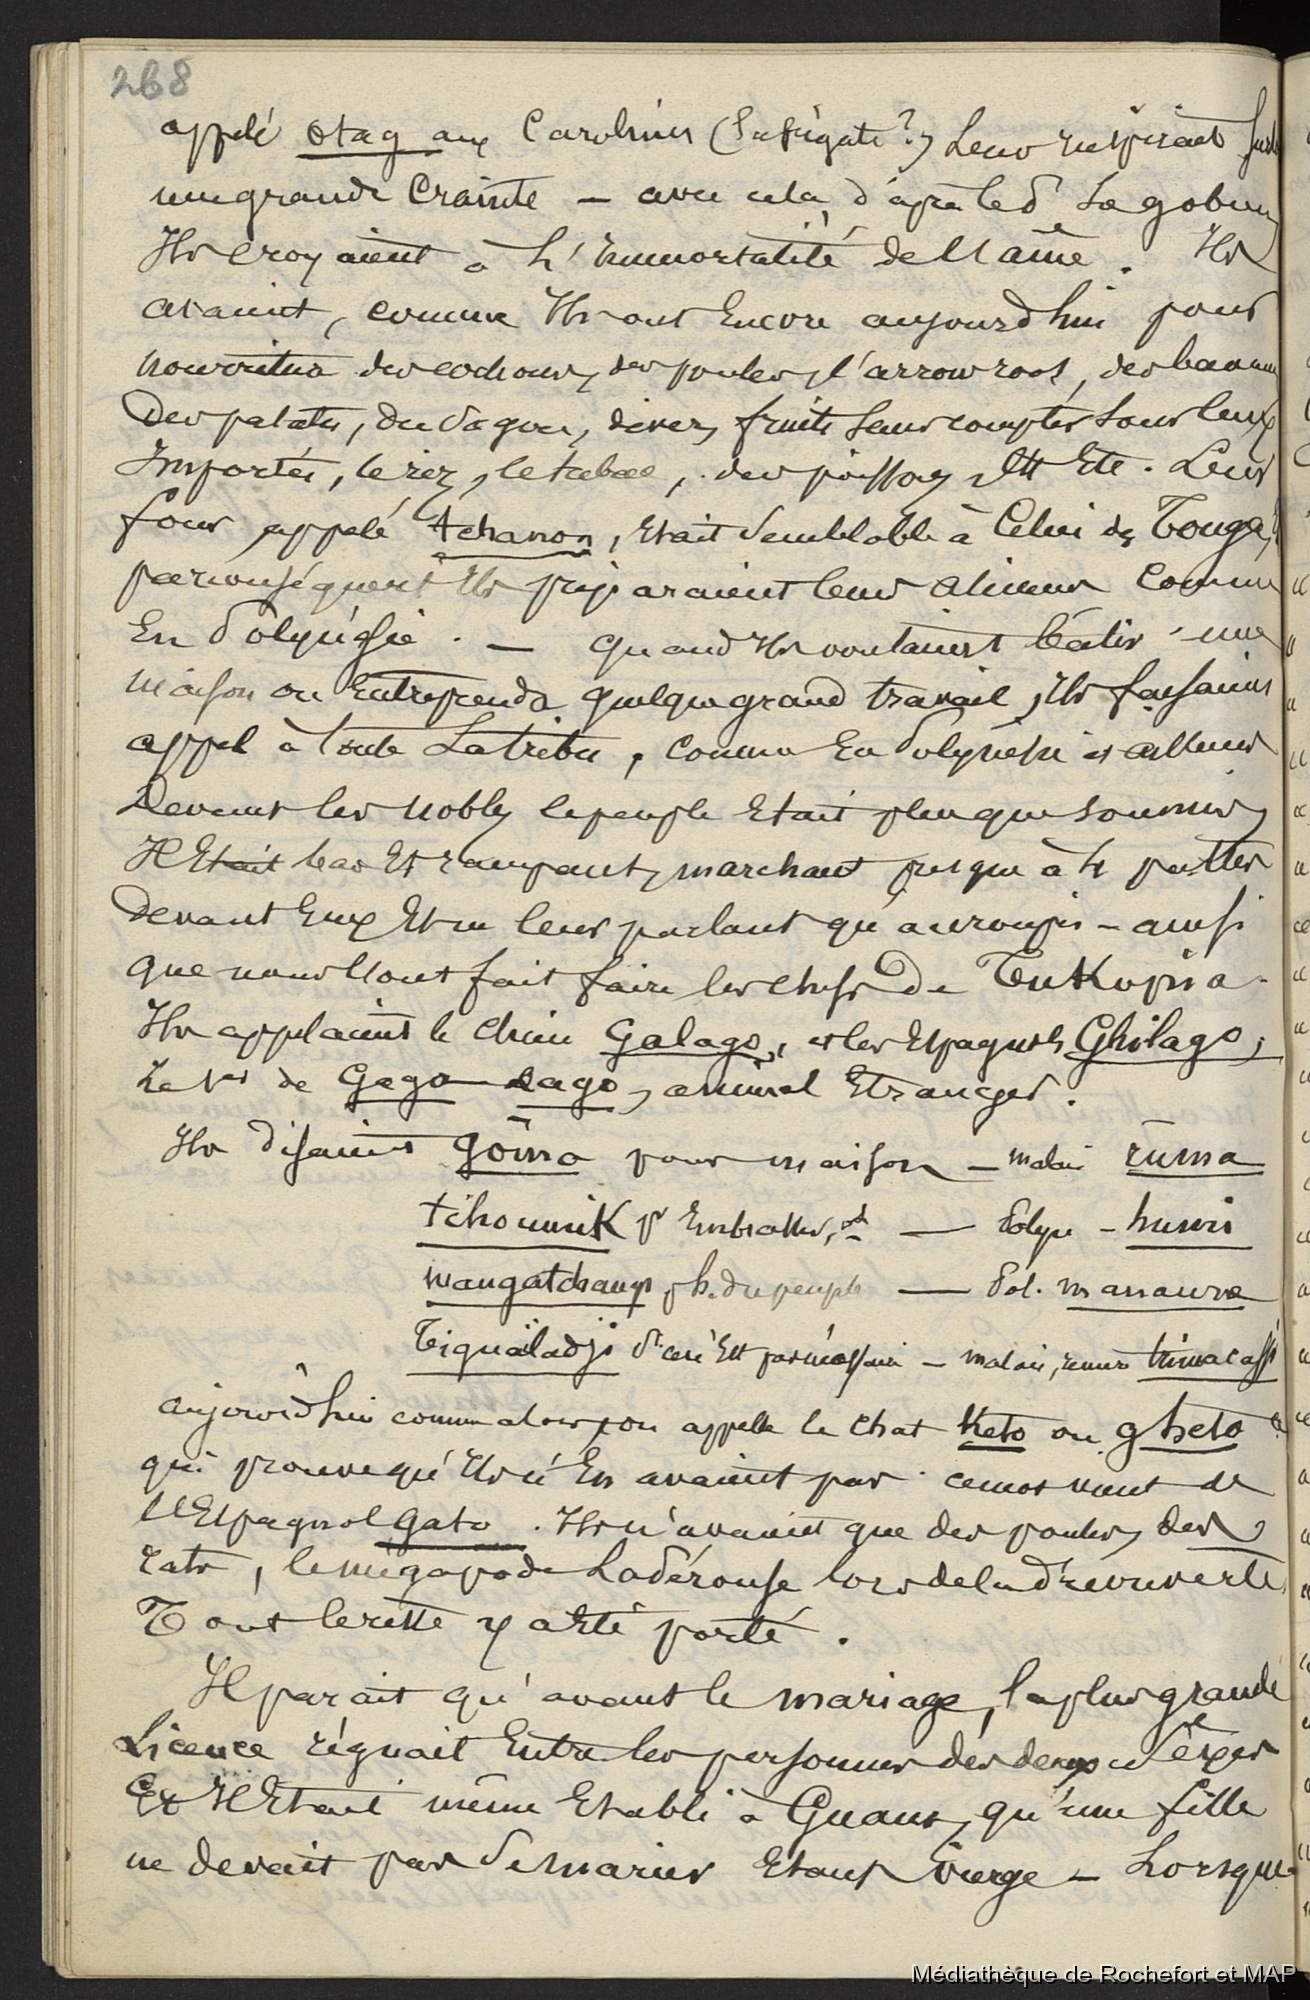 268
appelé otag aux Carolines (la frégate ?) Leur inspirait
une grande Crainte — avec cela, d'après le P. Le gobien
Ils croyaient à L'Immortalité de l'âme. Ils
avaient, comme Ils ont Encore aujourd'hui pour
nourriture des cochons, des poules, l'arrow root, des bananes
Des patates, du Sagou, divers fruits sans compter tous ceux
Importés, le riz, le tabac, des poissons, Ett Etc. Leur
four appelé tchanon, était Semblable à Celui des Tonga,
par conséquent Ils préparaient leurs aliments Comme
En Polynésie. — Quand Ils voulaient bâtir une
maison ou Entreprendre quelque grand travail, Ils faisaient
appel à toute La tribu, Comme En Polynésie et ailleurs
Devant les Nobles le peuple Etait plus que Soumis,
Il Etait bas Et rampant, marchant presque à 4 pattes
devant Eux Et ne leur parlant qu'accroupis — ainsi
que nous l'ont fait faire les chefs De Tukopia.
Ils appelaient le Chien Galago, et les Espagnols Ghilago,
Le 1er de Gaga - Lago, animal Etranger.
Ils disaient Gôma pour maison — malai rūma
tchoumik pr Embrasser, — Polyn — humi
mangatchang ph. du peuple — Pol. manauna
Tiguäladji — malais, trimacassi
aujourd'hui comme alors, on appelle le Chat Keto ou gheto ce
qui prouve qu'Ils n'En avaient pas. ce mot vient de
l'Espagnol Gato. Ils n'avaient que des poules, des
rats, le mégapode Lapérouse lors de la découverte
Tout le reste y a Eté porté.
Il parait qu'avant le mariage, la plus grande
Licence régnait Entre les personnes des deux Sexes
Et Il Etait même Etabli à Guam, qu'une fille
ne devait pas Se marier Etant vierge — Lorsque
Médiathèque de Rochefort et MAP